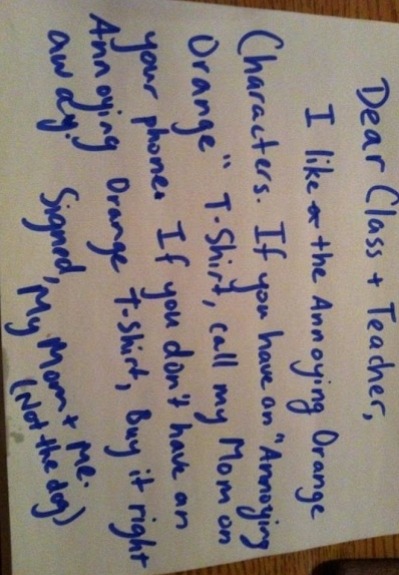 Dear Class + Teacher,
I like the Annoying Orange
Characters. If you have an "Annoying
Orange" T-Shirt, call my Mom on
your phone. If you don't have an
Annoying Orange T-shirt, Buy it right
away. Signed, My Mom + me.
(Not the dog)